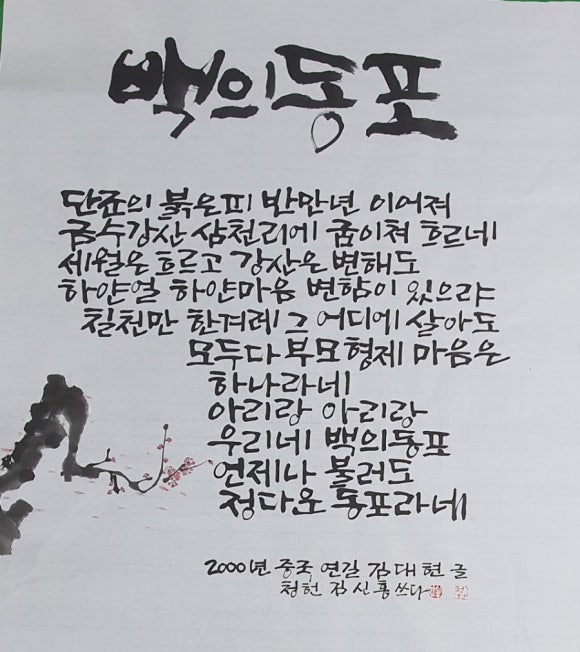 백의동포
단군의 붉은피 반만년 이어져
금수강산 삼천리에 굽이쳐 흐르네
세월은 흐르고 강산은 변해도
하얀얼 하얀마음 변함이 있으랴
칠천만 한겨레 그 어디에 살아도
모두다 부모형제 마음은
하나라네
아리랑 아리랑
우리네 백의동포
언제나 불러도
정다운 동포라네
2000년 중국 연길 김대현 글
청헌 김신홍 쓰다